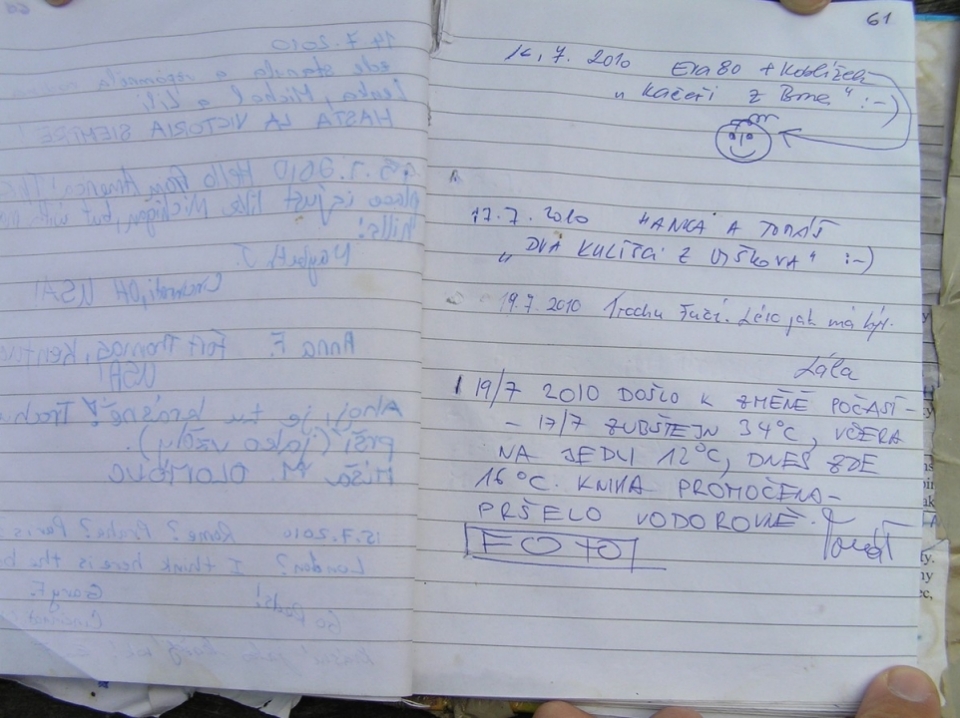 14.7.2010
zde stanula a
Lenka, Michal a Lili
HASTA LA VICTORIA SIEMPRE!
15.7.2010 Hello from America! This
place is just like Michigan, but with
hills!
J.
Cincinnati, OH USA!
Anna F. Fort Thomas, Kentu
USA!
Ahoj, je tu krásně! Trochu
prší (jako vždy).
Míša M. OLOMOUC
15.7.2010 Rome? Praha? Paris?
London? I think here is the b
Go Reds! Gary F.
Cincinnati
61
16.7. 2010 + Koblížek
„ Kačeři z Brna" :-)
17.7. 2010 HANKA A TOMÁŠ
„ DVA KULIŠCI Z VYŠKOVA" :-)
19.7.2010 Trochu fučí. Léto jak má být.
Lála
19/7 2010 DOŠLO K ZMĚNĚ POČASÍ -
- 17/7 ZUBŠTEJN 34°C, VČERA
NA JEDLI 12°C, DNES ZDE
16°C. KNIHA PROMOČENA -
PRŠELO VODOROVNĚ. Tomáš
FOTO